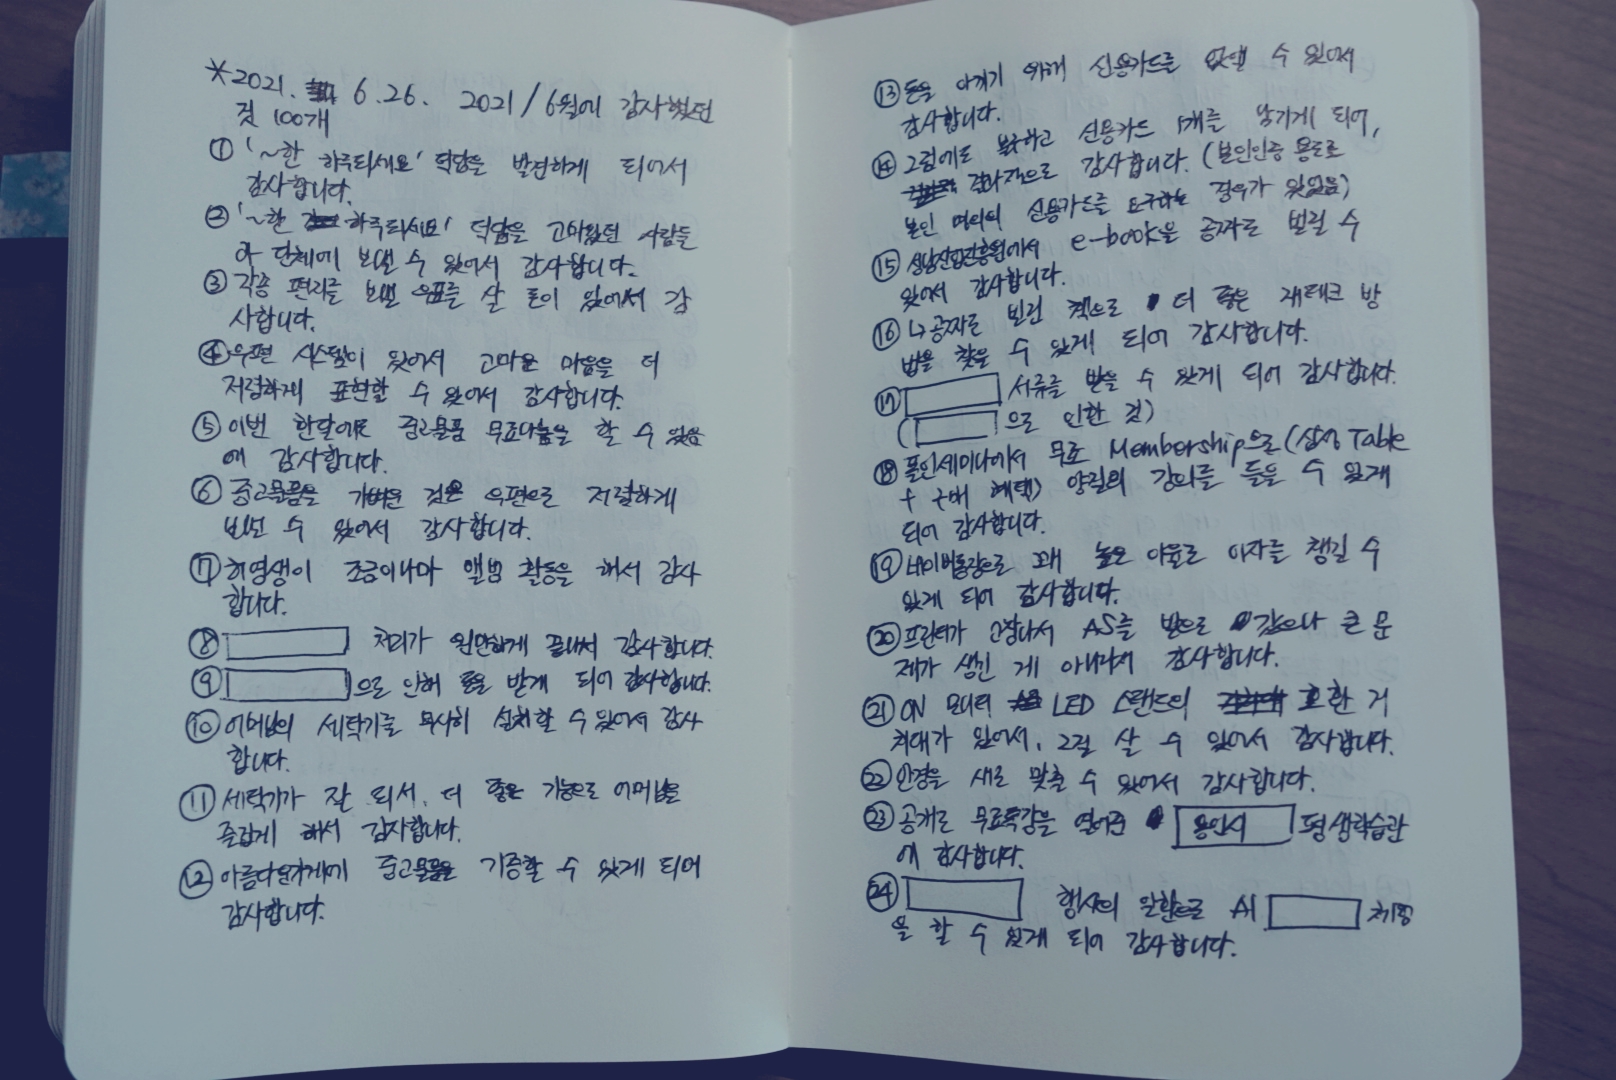 *2021. 6.26. 2021/6월에 감사했던
것 100개
① '~한 하루되세요' 덕담을 발견하게 되어서
감사합니다.
② '~한 하루되세요' 덕담을 고마웠던 사람들
과 단체에 보낼 수 있어서 감사합니다.
③ 각종 편지를 보낼 우표를 살 돈이 있어서 감
사합니다.
④ 우편 시스템이 있어서 고마운 마음을 더
저렴하게 표현할 수 있어서 감사합니다.
⑤ 이번 한달에도 중고물품 무료나눔을 할 수 있음
에 감사합니다.
⑥ 중고물품을 가벼운 것은 우편으로 저렴하게
보낼 수 있어서 감사합니다.
⑦ 허영생이 조금이나마 앨범 활동을 해서 감사
합니다.
⑧ 처리가 원만하게 끝나서 감사합니다.
⑨ 으로 인해 돈을 받게 되어 감사합니다.
⑩ 어머님의 세탁기를 무사히 설치할 수 있어서 감사
합니다.
⑪ 세탁기가 잘 되서, 더 좋은 기능으로 어머님을
즐겁게 해서 감사합니다.
⑫ 아름다운가게에 중고물품을 기증할 수 있게 되어
감사합니다.
⑬ 돈을 아끼기 위해 신용카드를 없앨 수 있어서
감사합니다.
⑭ 그럼에도 불구하고 신용카드 1개를 남기게 되어,
결과적으로 감사합니다. (본인인증 용도로
본인 명의의 신용카드를 요구하는 경우가 있었음)
⑮ 성남산업진흥원에서 e-book을 공짜로 빌릴 수
있어서 감사합니다.
⑯ 나 공짜로 빌린 책으로 더 좋은 재테크 방
법을 찾을 수 있게 되어 감사합니다.
⑰ 서류를 받을 수 있게 되어 감사합니다.
( 으로 인한 것)
⑱ 폴인세미나에서 무료 Membership으로 (삼성 Table
+ 구매 혜택) 양질의 강의를 들을 수 있게
되어 감사합니다.
⑲ 네이버통장으로 꽤 높은 이율로 이자를 챙길 수
있게 되어 감사합니다.
⑳ 프린터가 고장나서 AS를 받으로 갔으나 큰 문
제가 생긴 게 아니라서 감사합니다.
㉑ ON 모니터 LED 스탠드의 호환 거
치대가 있어서, 그걸 살 수 있어서 감사합니다.
㉒ 안경을 새로 맞출 수 있어서 감사합니다.
㉓ 공개로 무료특강을 열어준 용인시 평생학습관
에 감사합니다.
㉔ 행사의 일환으로 AI 체험
을 할 수 있게 되어 감사합니다.